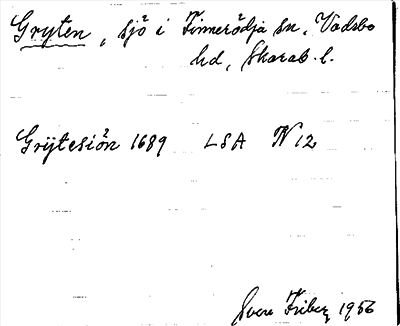 Gryten, sjö i Finnerödja sn, Vadsbo
hd, Skarab. l.
Grÿtesiön 1689 LSA N 12
Sven Friberg 1956